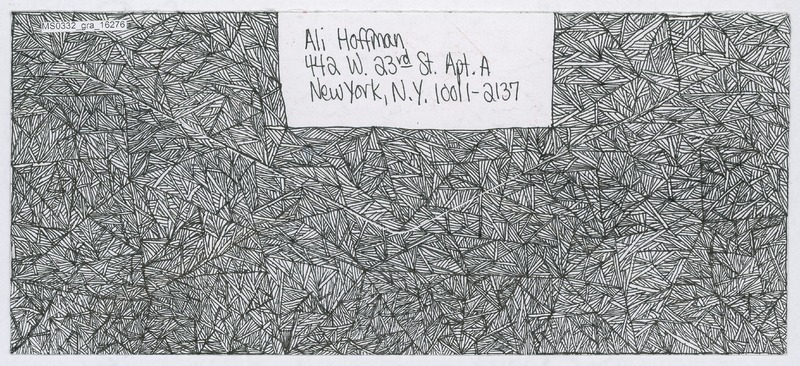 MS0332_gra_16276
Ali Hoffman
442 W. 23rd St. Apt. A
New York, N.Y. 10011-2137